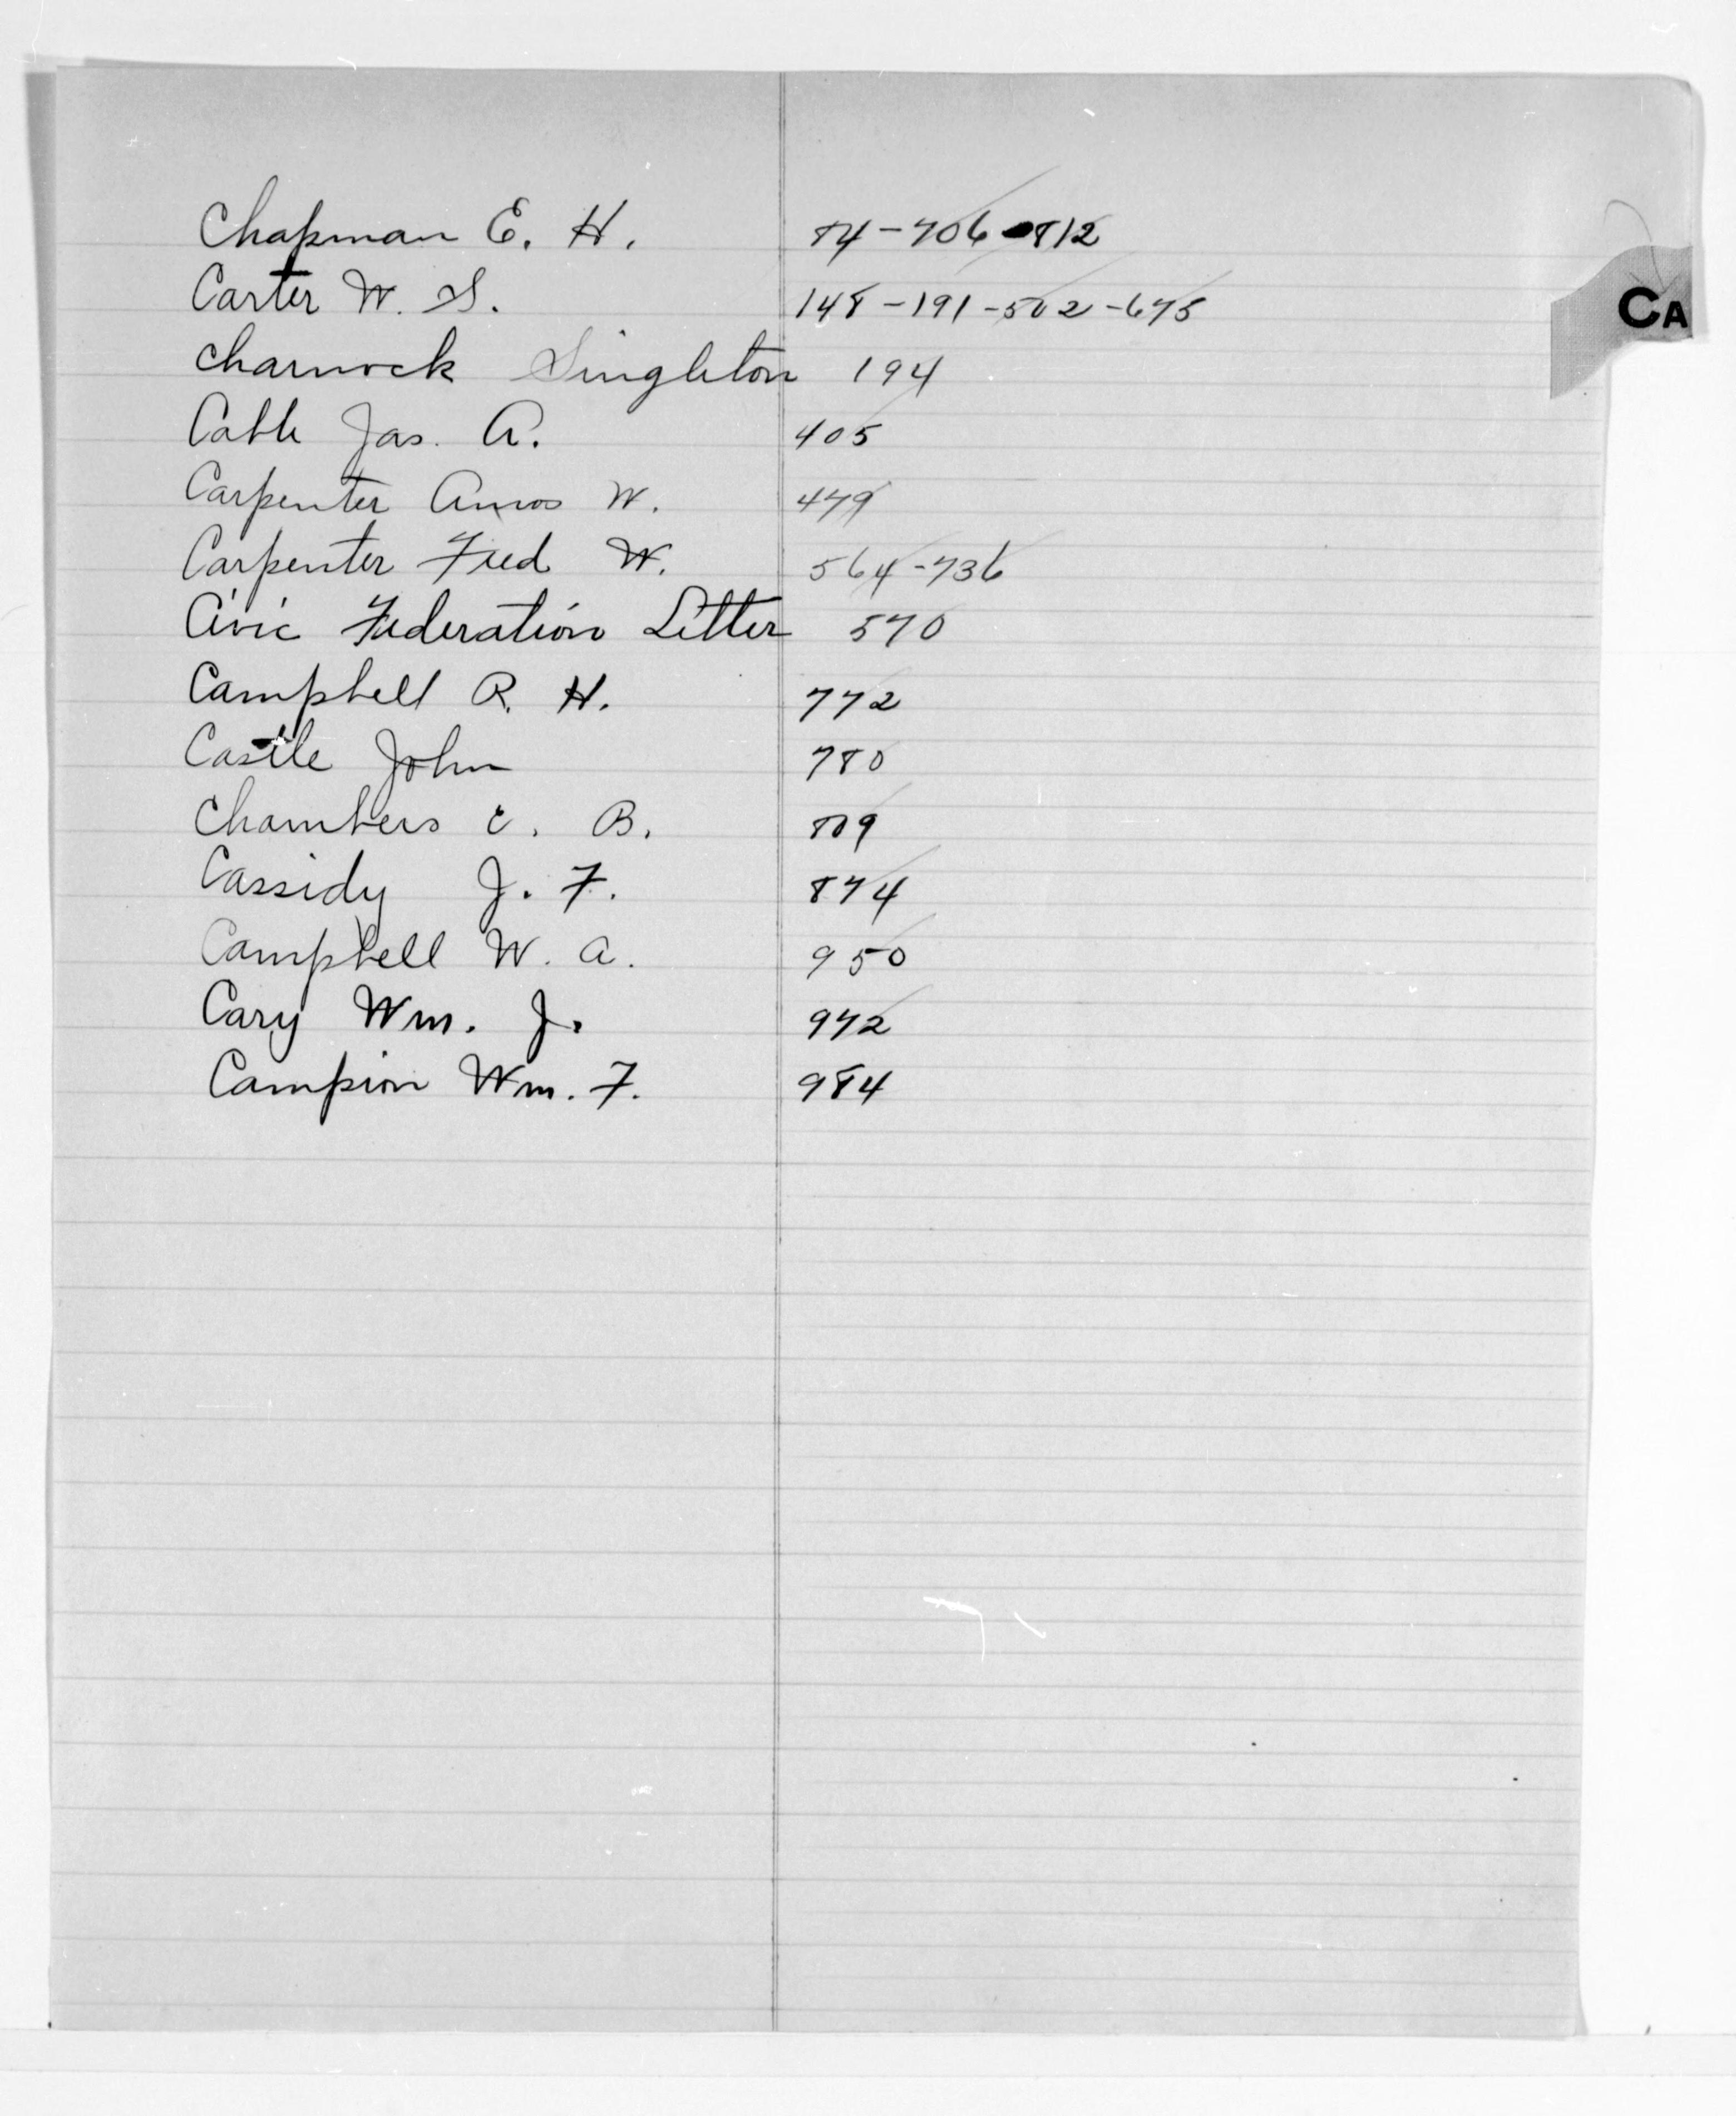 Chapman E. H. 84-706-812
CA
Carter W. S. 148-191-502-675
Charnock Singleton 194
Cable Jas. A. 405
Carpenter Amos W. 479
Carpenter Fred W. 564-736
Civic Federation Letter 570
Campbell R. H. 772
Castle John 780
Chambers E. B. 809
Cassidy J. F. 874
Campbell W. A. 950
Cary Wm. J. 972
Campion Wm. F. 984